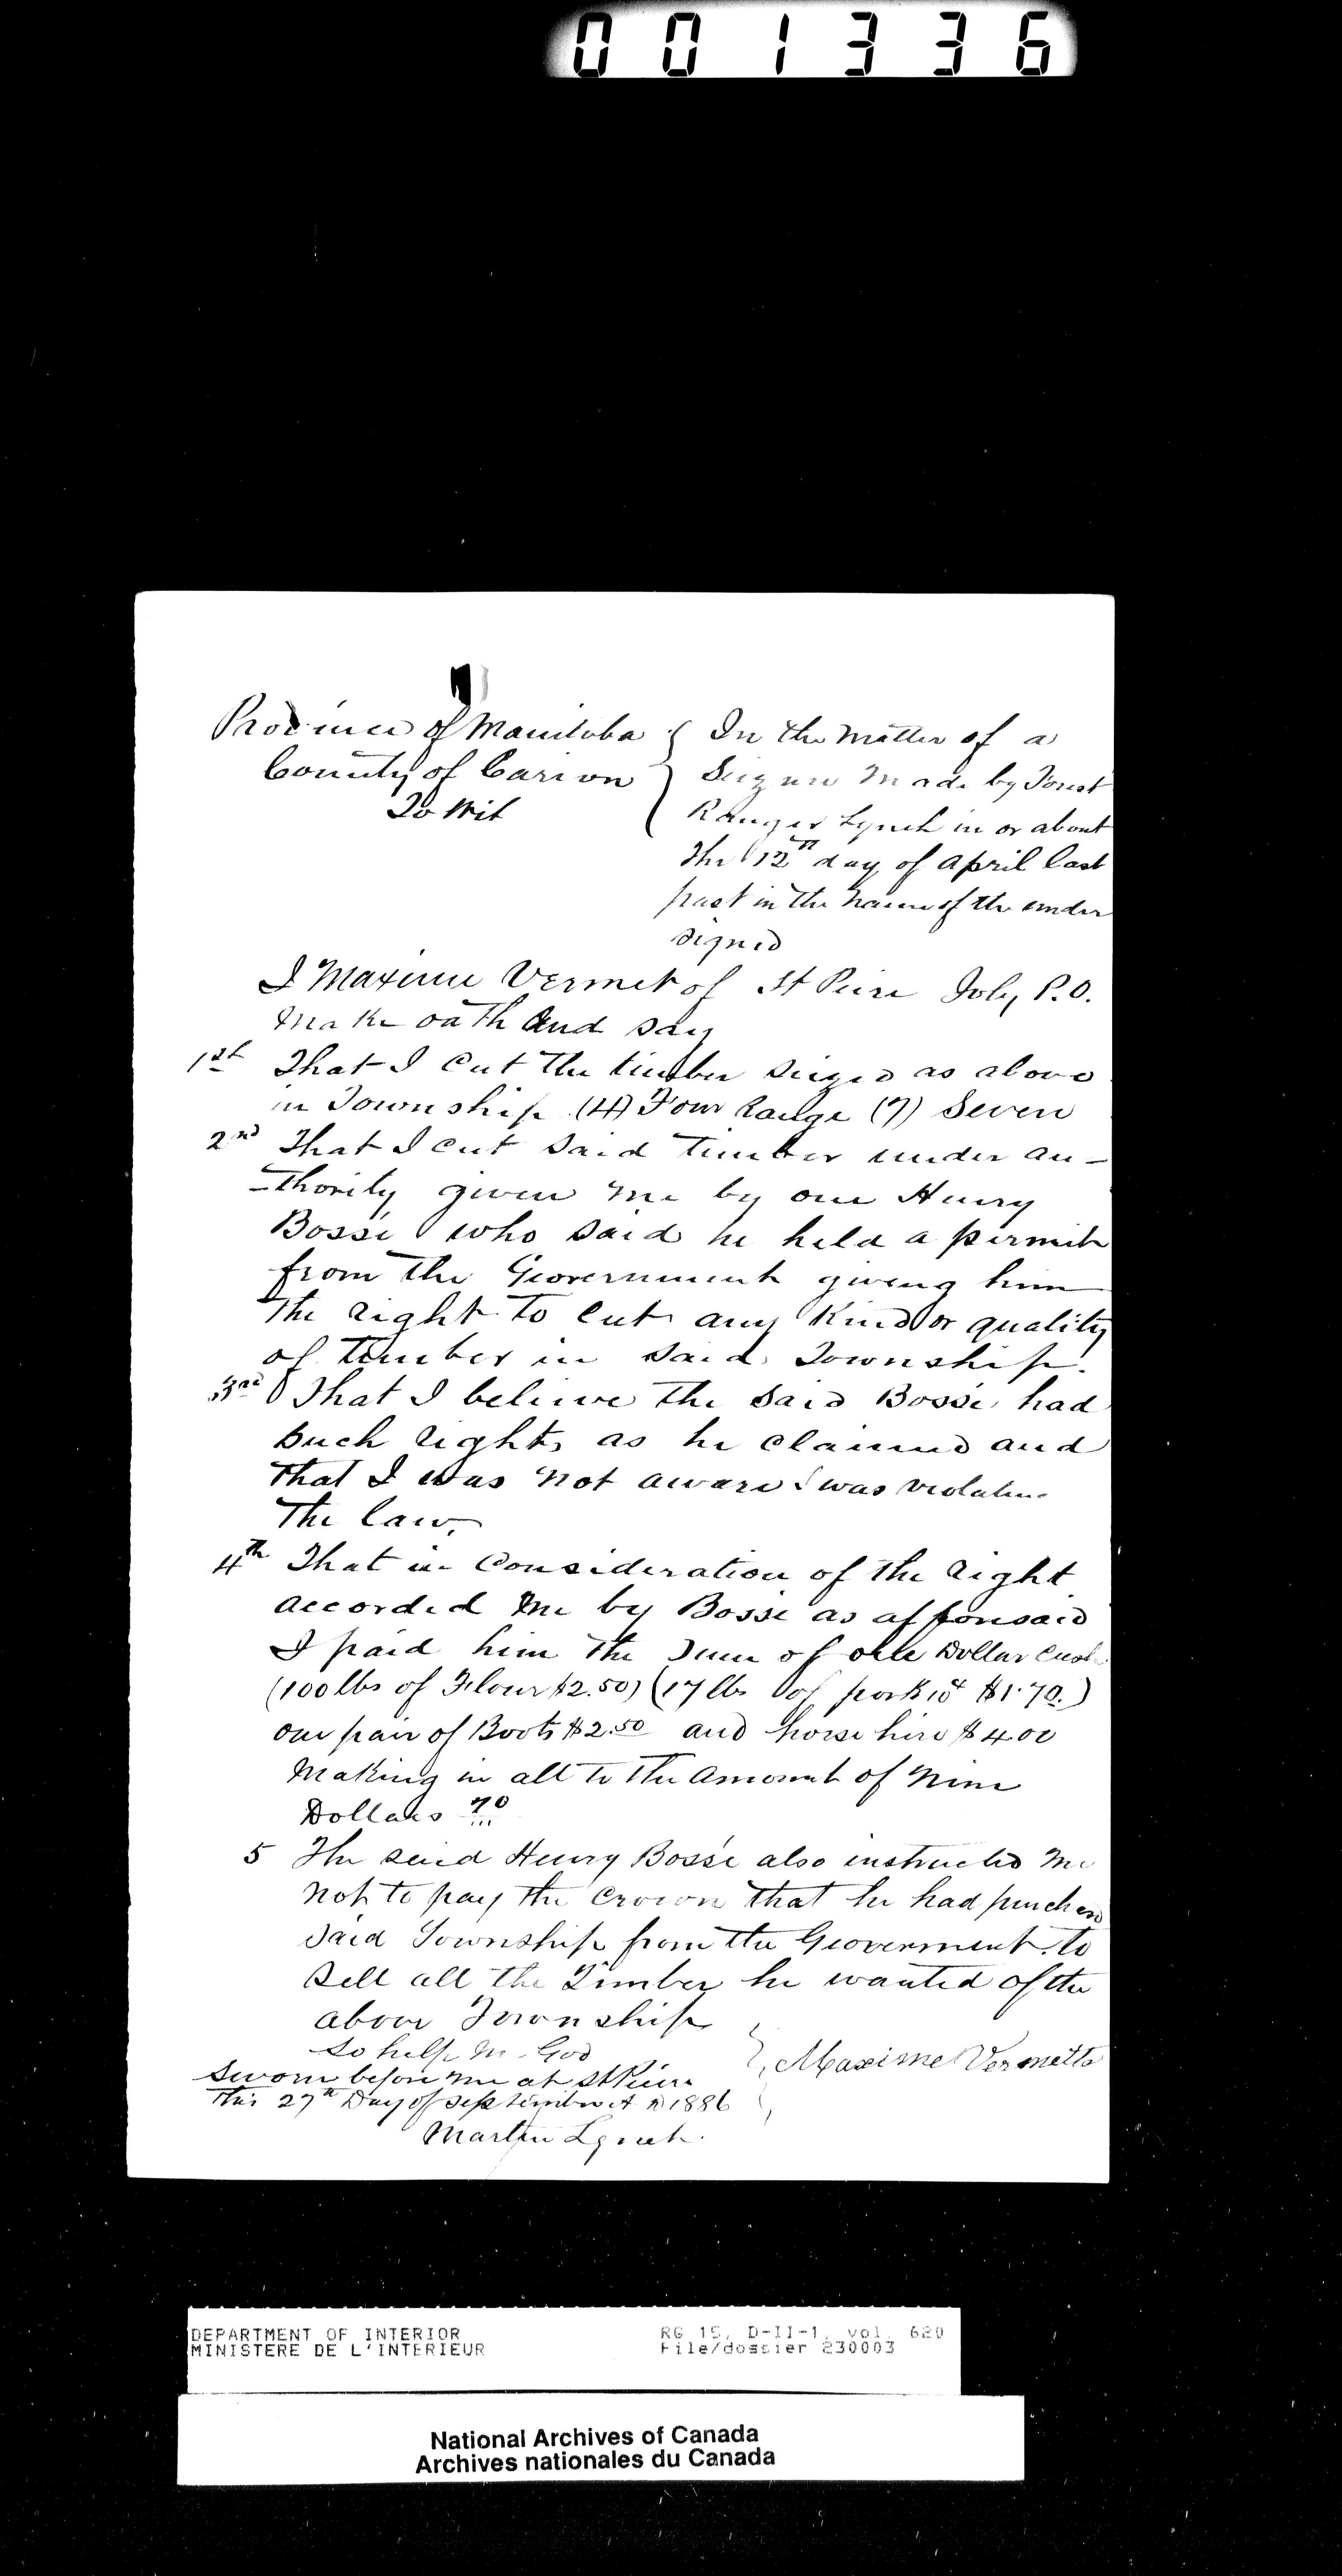 001336
Province of Manitoba
County of Carion
To Wit
In the Matter of a
Seizure Made by Forest
Ranger Lynch in or about
The 12th day of April last
past in the name of the under
signed
I Maxime Vermet of St Peire Joly P.O.
Make oath And say
1st That I Cut The timber seized as above
in Township (4) Four Range (7) Seven
2nd That I cut said timber under au-
-thority given me by one Henry
Bossé who said he held a permit
from the Government giveng him
The right to cut any Kind or quality
of timber in said Township.
3rd That I believe the said Bossé had
such rights as he claimed and
That I was not aware I was violating
The law.
4th That in Consideration of the right
accorded me by Bossé as afforesaid
I paid him the sum of one Dollar cash
(100 lbs of Flour $2.50) (17 lbs of pork 10¢ $1.70.)
one pair of Boots $2.50 and horse hire $4.00
Making in all to the amount of Nine
Dollars 70
5 The said Henry Bossé also instructed me
not to pay the Crown that he had purchased
said Township from the Goverment to
sell all the Timber he wanted of the
above Township
So help me God
Sworn before me at St Pierre
This 27th Day of September A D 1886
Maxime Vermette
Martin Lynch.
DEPARTMENT OF INTERIOR
MINISTERE DE L'INTERIEUR
RG 15, D-II-1, vol. 620
File/dossier 230003
National Archives of Canada
Archives nationales du Canada